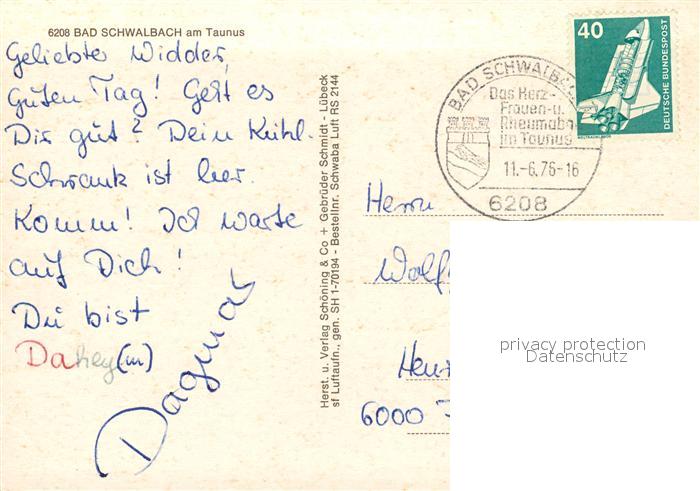 6208 BAD SCHWALBACH am Taunus
Geliebter Widder,
Guten Tag! Geht es
Dir gut? Dein Kühl-
Schrank ist hier.
Komm! Ich warte
auf Dich!
Du bist
Dahey(m)
Dagmar
Herst. u. Verlag Schöning & Co + Gebrüder Schmidt - Lübeck
sf Luftaufn., gen. SH 1-70194 - Bestellnr. Schwaba Luft RS 2144
40
DEUTSCHE BUNDESPOST
BAD SCHWALB
Das Herz-
Frauen-u.
Rheumaba
im Taunus
11.-6.76-16
6208
Herrn
Wolf
6000
privacy protection
Datenschutz